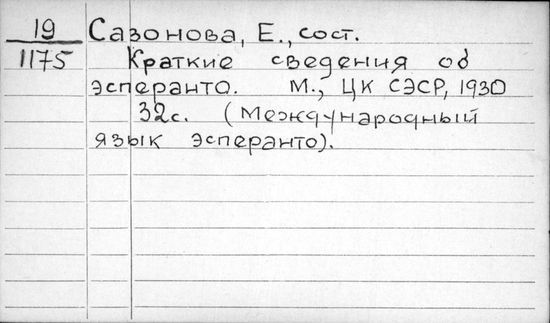 19
1175
Сазонова, Е., сост.
Краткие сведения об
эсперанто. М., ЦК СЭСР, 1930
32с. (Международный
язык эсперанто).